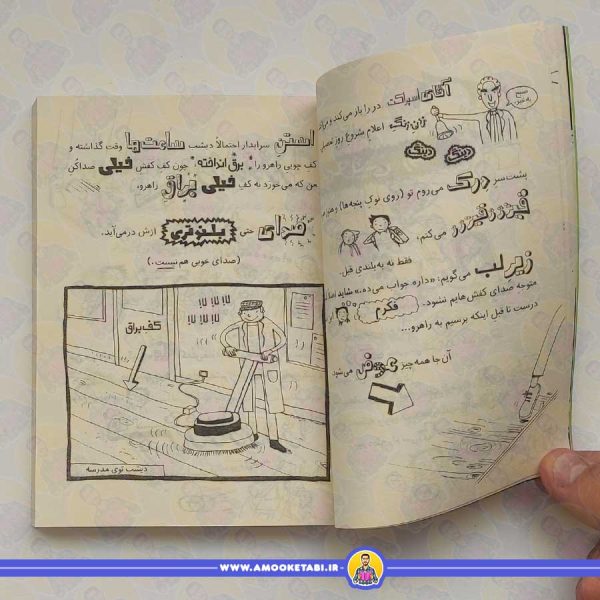 آقای اسپراکت در را باز می‌کند و
صبح به خیر.
زنگ اعلام شروع روز
دینگ
دینگ
پشت سر درک می‌روم تو (روی نوک پنجه‌ها) و
قیژژژ قیژژژ می‌کنم؛
فقط نه به بلندی قبل.
زیر لب می‌گویم: «داره جواب می‌ده.» شاید
متوجه صدای کفش هایم نشود.
فکرم
درست تا قبل اینکه برسیم به راهرو...
آن جا همه چیز عوض می‌شود
استن سرایدار احتمالاً دیشب ساعت‌ها وقت گذاشته و
کف چوبی راهرو را برق انداخته، چون کف کفش خیلی صداکن
من که می‌خورد به کف خیلی براق راهرو،
صدای حتی بلندتری ازش در می‌آید.
(صدای خوبی هم نیست.)
کف براق
دیشب توی مدرسه
WWW.AMOOKETABI.IR